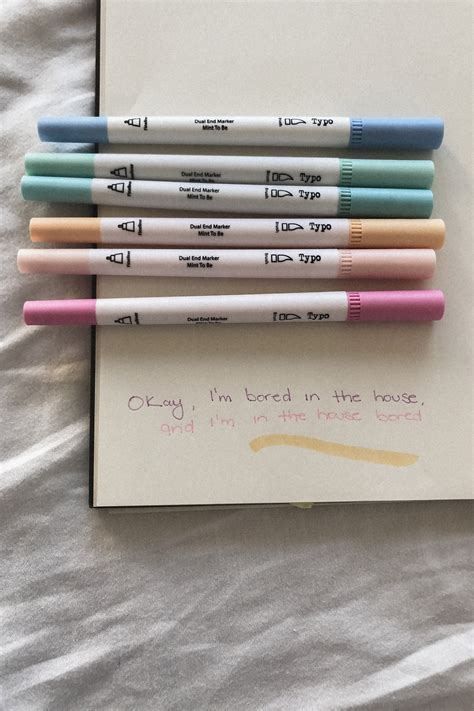 Dual End Marker
Mint To Be
Typo
Dual End Marker
Mint To Be
Typo
Dual End Marker
Mint To Be
Typo
Dual End Marker
Mint To Be
Typo
Dual End Marker
Mint To Be
Typo
Dual End Marker
Mint To Be
Typo
Okay, I'm bored in the house,
and I'm in the house bored